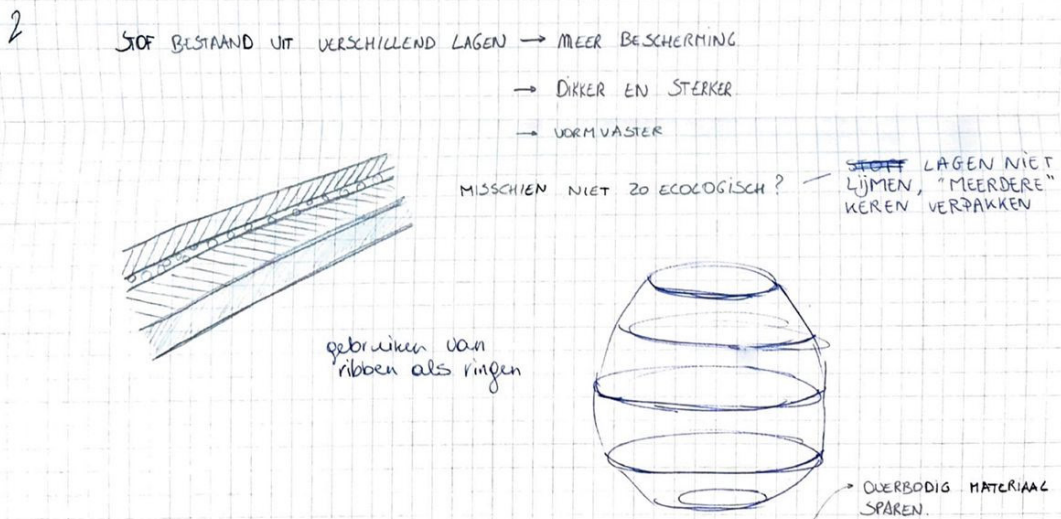 2
STOF BESTAAND UIT VERSCHILLEND LAGEN → MEER BESCHERMING
→ DIKKER EN STERKER
→ VORMVASTER
MISSCHIEN NIET ZO ECOLOGISCH? — STOFF LAGEN NIET
LIJMEN, "MEERDERE"
KEREN VERPAKKEN
gebruiken van
ribben als ringen
OVERBODIG MATERIAAL
SPAREN.